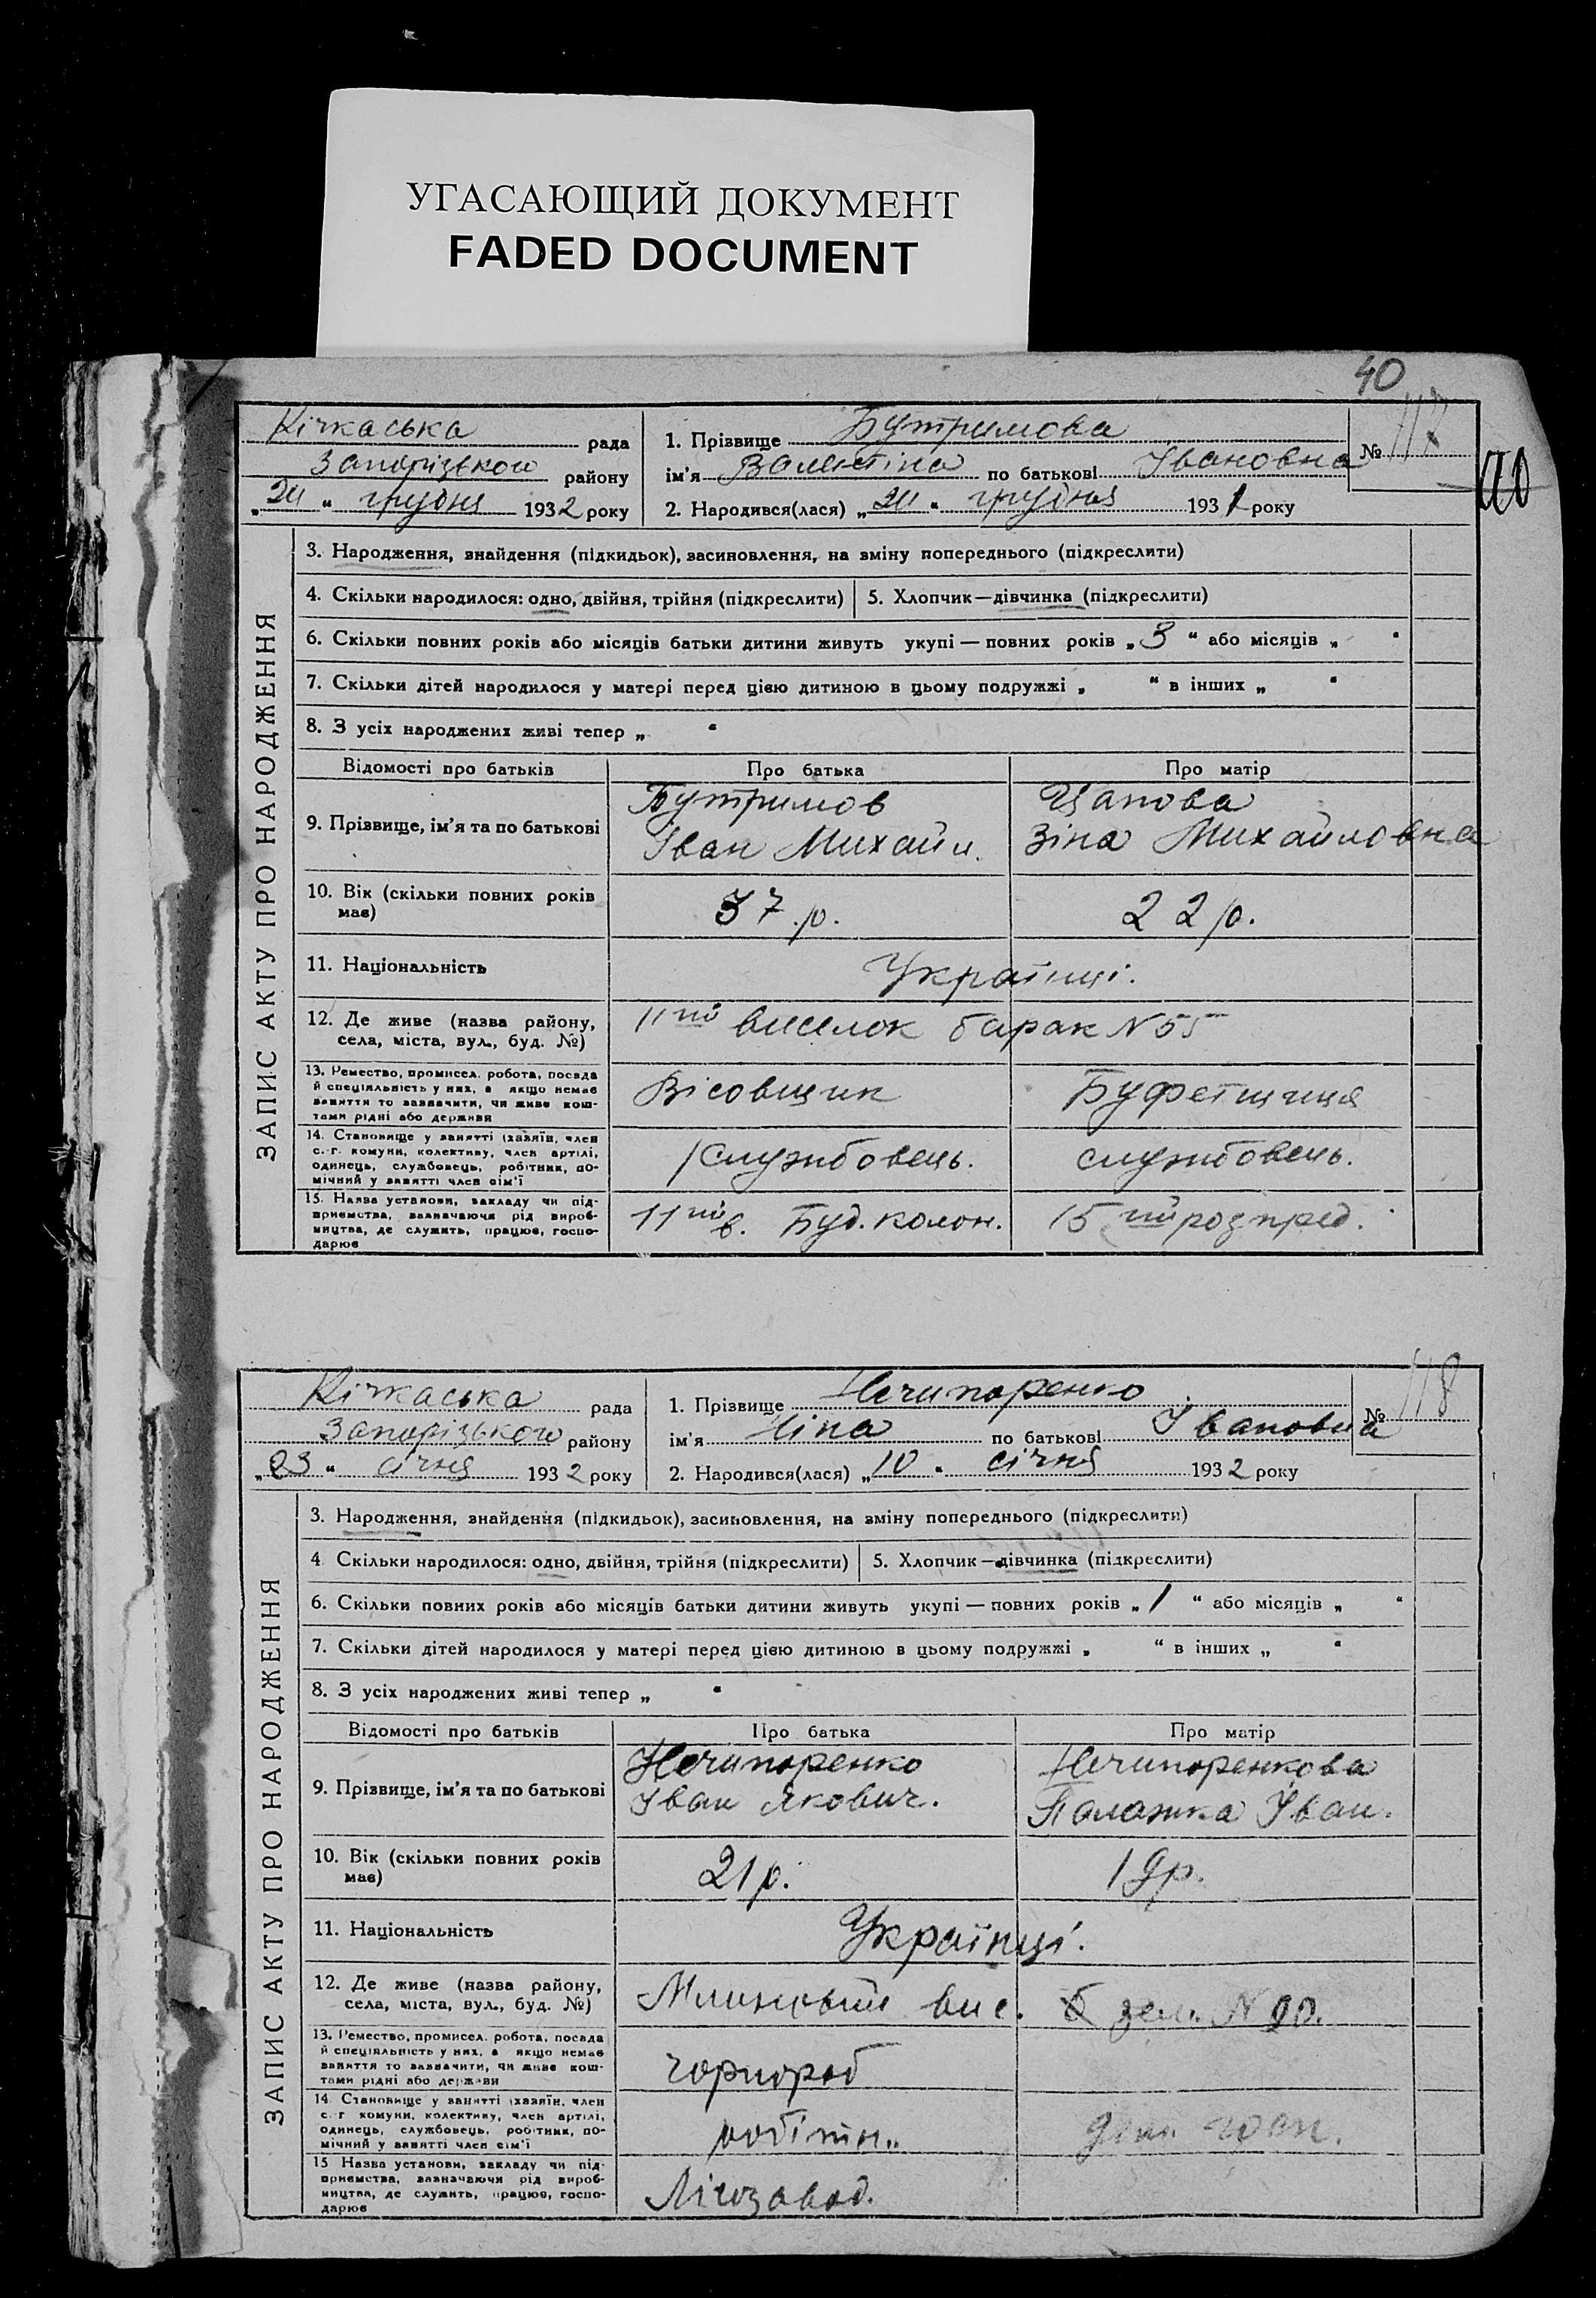 УГАСАЮЩИЙ ДОКУМЕНТ
FADED DOCUMENT
40
Кічкаська рада
Запорізького району
„24“ грудня 1932 року
1. Прізвище Бутримова
ім’я Валентіна по батькові Івановна
2. Народився(лася) „24“ грудня 1931 року
№ 117
ЗАПИС АКТУ ПРО НАРОДЖЕННЯ
3. Народження, знайдення (підкидьок), засиновлення, на зміну попереднього (підкреслити)
4. Скільки народилося: одно, двійня, трійня (підкреслити) 5. Хлопчик—дівчинка (підкреслити)
6. Скільки повних років або місяців батьки дитини живуть укупі — повних років „3“ або місяців „ “
7. Скільки дітей народилося у матері перед цією дитиною в цьому подружжі „ “ в інших „ “
8. З усіх народжених живі тепер „ “
Відомості про батьків Про батька Про матір
9. Прізвище, ім’я та по батькові
Бутримов
Іван Михайл.
Цапова
Зіна Михайловна
10. Вік (скільки повних років
має)
37 р.
22 р.
11. Національність
Українці.
12. Де живе (назва району,
села, міста, вул., буд. №)
11ий виселок барак N 55
13. Ремество, промисел, робота, посада
й спеціяльність у них, а якщо немає
заняття то зазначити, чи живе кош-
тами рідні або держави
Вісовщик
Буфетщиця
14. Становище у занятті (хазяїн, член
с.-г. комуни, колективу, член артілі,
одинець, службовець, робітник, по-
мічний у занятті член сім’ї
службовець.
службовець.
15. Назва установи, закладу чи під-
приємства, зазначаючи рід вироб-
ництва, де служить, працює, госпо-
дарює
11ий в. Буд. колон.
15 ий розпред.
Кічкаська рада
Запорізького району
„23“ січня 1932 року
1. Прізвище Нечипоренко
ім’я Ніна по батькові Івановна
2. Народився(лася) „10“ січня 1932 року
№ 118
ЗАПИС АКТУ ПРО НАРОДЖЕННЯ
3. Народження, знайдення (підкидьок), засиновлення, на зміну попереднього (підкреслити)
4. Скільки народилося: одно, двійня, трійня (підкреслити) 5. Хлопчик—дівчинка (підкреслити)
6. Скільки повних років або місяців батьки дитини живуть укупі — повних років „1“ або місяців „ “
7. Скільки дітей народилося у матері перед цією дитиною в цьому подружжі „ “ в інших „ “
8. З усіх народжених живі тепер „ “
Відомості про батьків Про батька Про матір
9. Прізвище, ім’я та по батькові
Нечипоренко
Іван Якович.
Нечипоренкова
Палажка Іван.
10. Вік (скільки повних років
має)
21 р.
19 р.
11. Національність
Українці.
12. Де живе (назва району,
села, міста, вул., буд. №)
вис. зем. N
13. Ремество, промисел, робота, посада
й спеціяльність у них, а якщо немає
заняття то зазначити, чи живе кош-
тами рідні або держави
чорнороб
14. Становище у занятті (хазяїн, член
с.-г. комуни, колективу, член артілі,
одинець, службовець, робітник, по-
мічний у занятті член сім’ї
робітн.
дом. госп.
15. Назва установи, закладу чи під-
приємства, зазначаючи рід вироб-
ництва, де служить, працює, госпо-
дарює
Лісозавод.